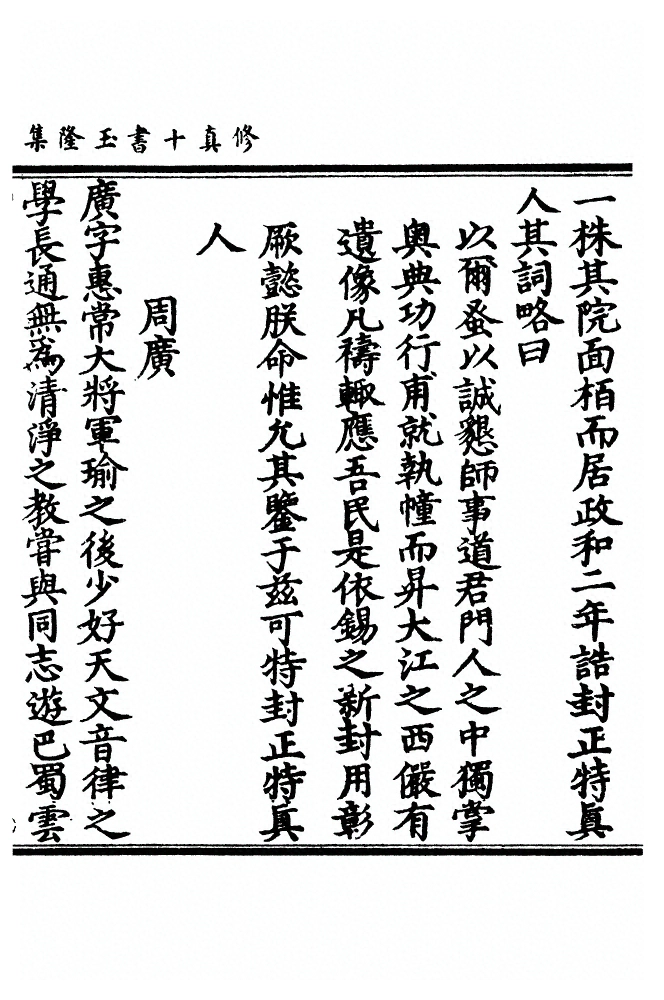 修真十書玉隆集
一株其院面栢而居政和二年誥封正特真
人其詞略曰
以爾蚤以誠懇師事道君門人之中獨掌
奧典功行甫就執幢而昇大江之西儼有
遺像凡禱輙應吾民是依錫之新封用彰
厥懿朕命惟允其鑒于兹可特封正特真
人
周廣
廣字惠常大將軍瑜之後少好天文音律之
學長通無為清淨之教甞與同志遊巴蜀雲